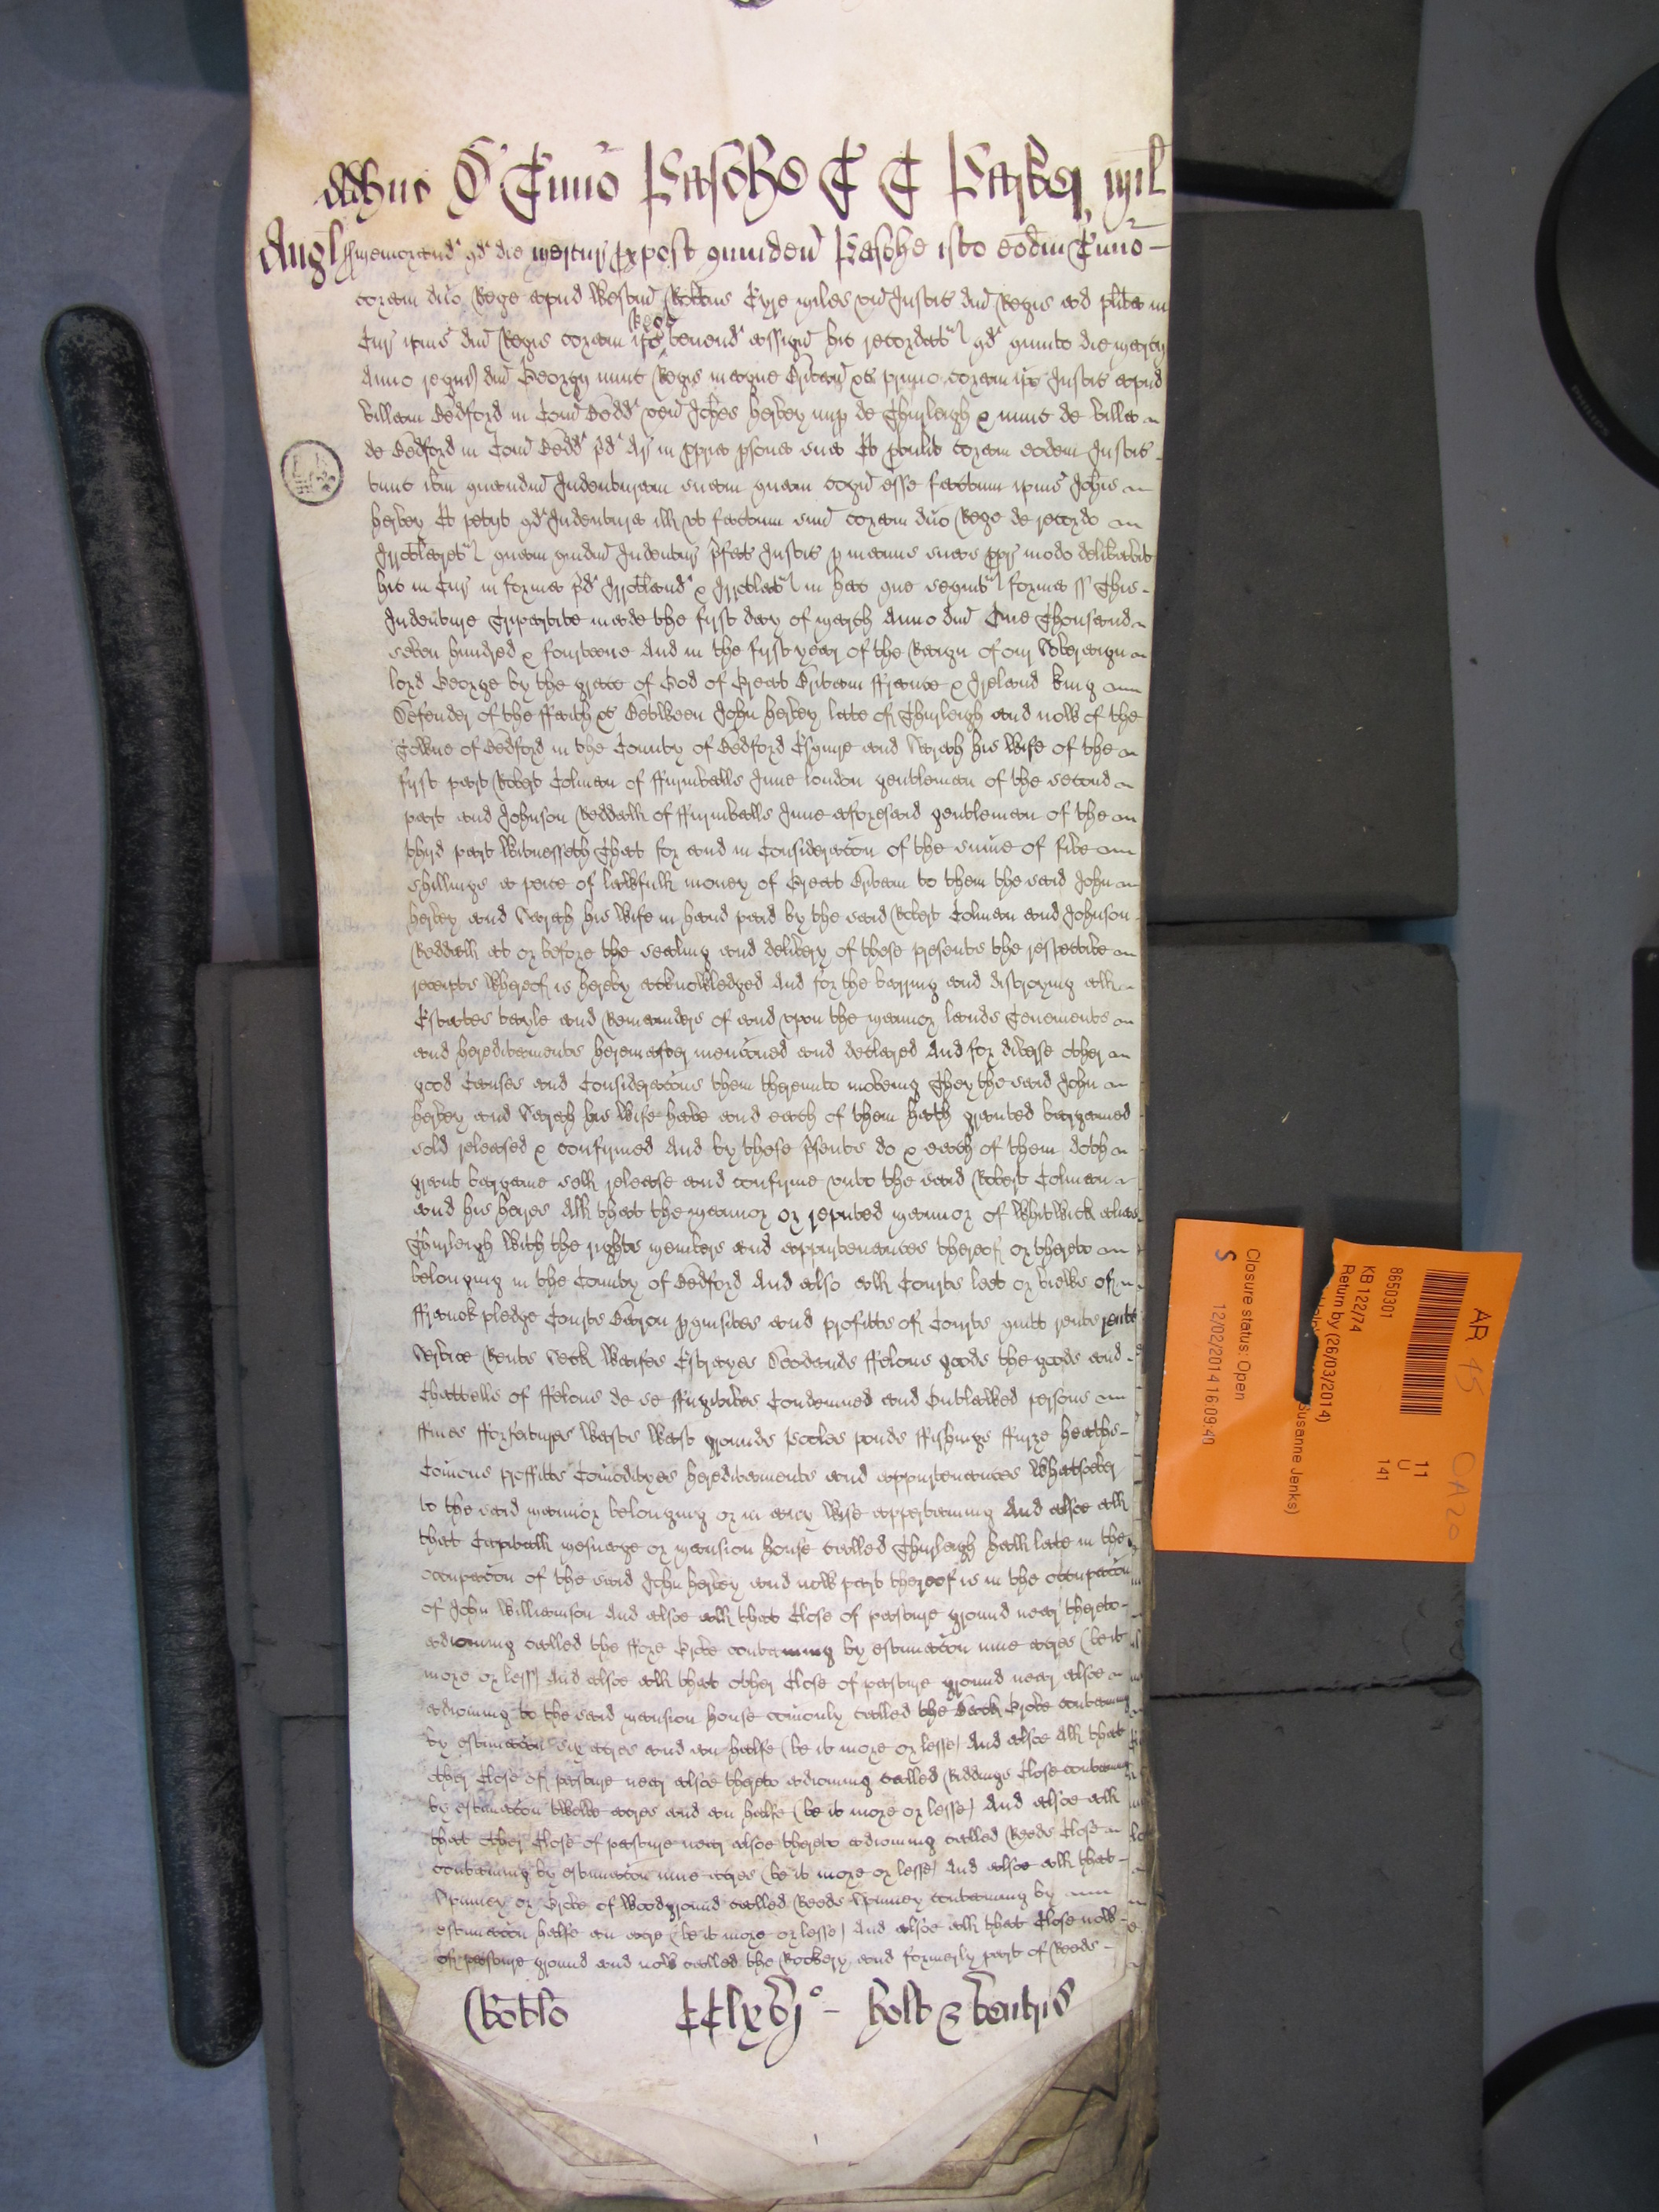 Adhuc De Termino Pasche T T Parker mil
Angl ss Memorand qd die Mercurij px post quinden Pasche isto eodm Termino
coram dno Rege apud Westm Robtus Eyre miles un Justic dni Regis ad plita in
Cur ipius dni Regis coram ipo Rege tenend assign hic recordatr qd quinto die Marcij
Anno regni dni Georgij nunc Regis magne Britan &c primo coram ipo Justic apud
villam Bedford in Com Bedd ven Johes Hervey nup de Thurleigh & nunc de villa
de Bedford in Com Bedd pd Ar in ppria psona sua Et ptulit coram eodem Justic
tunc ibm quandm Indenturam suam quam cogn esse factum ipius Johis
Hervey Et petijt qd Indentura ill ut factum suu coram dno Rege de recordo
Irrotlaretr quam quidm Indentur pfat Justic p manus suas ppr modo delibavit
hic in Cur in forma pd Irrotland & Irrotlatr in hac que sequitr forma ss This
Indenture Tripartite made the first day of March Anno dni One Thousand
seven hundred & fourteene And in the first year of the Raign of our Soveraign
lord George by the grace of God of Great Britain ffrance & Ireland King
Defender of the ffaith &c Between John Hervey late of Thurleigh and now of the
Towne of Bedford in the County of Bedford Esquire and Sarah his Wife of the
first part Robert Colman of ffurnivalls Inne london gentleman of the second
part and Johnson Reddall of ffurnivalls Inne aforesaid gentleman of the
third part Witnesseth That for and in Consideracon of the sume of five
shillings a peice of lawfull money of Great Britain to them the said John
Hervey and Sarah his Wife in hand paid by the said Robert Colman and Johnson
Reddall at or before the sealing and delivery of these presents the respective
receipts whereof is hereby acknowledged And for the barring and distroying all
Estates tayle and Remainders of and upon the Mannor lands Tenements
and hereditaments hereinafter menconed and declared And for diverse other
good Causes and Consideracons them thereunto moveing They the said John
Hervey and Sarah his Wife have and each of them hath granted bargained
sold released & confirmed And by these psents do & each of them doth
grant bargaine sell release and confirme unto the said Robert Colman
and his heires All that the Mannor or reputed Mannor of Whitwick alias
Thurleigh with the rights members and appurtenances thereof or thereto
belonging in the County of Bedford And also all Courts leet or views of
ffranck pledge Courts Baron pquisites and profitts of Courts quitt rents rents
service Rents Seck Waifes Estrayes Deodands ffelons goods the goods and
Chattells of ffelons de se ffugitives Condemned and Outlawed persons
ffines fforfeitures Wasts Wast grounds Pooles ponds ffishings ffurze heaths
Comons proffitts Comodityes hereditaments and appurtenances Whatsoever
to the said Mannor belonging or in any wise appertaining And alsoe all
that Capitall Mesuage or Mansion house called Thurleigh Hall late in the
occupacon of the said John Hervey and now part thereof is in the occupacon
of John Williamson And alsoe all that Close of pasture ground near thereto
adioining called the ffore Grove containing by estimacon nine acres (be it
more or less) And alsoe all that other Close of pasture ground near alsoe
adioining to the said Mansion house comonly called the Back Grove containing
by estimacon six acres and an halfe (be it more or lesse) And alsoe All that
other Close of pasture near alsoe thereto adioining called Riddings Close containing
by estimacon twelve acres and an halfe (be it more or lesse) And alsoe all
that other Close of pasture near alsoe thereto adioining called Reeds Close
containing by estimacon nine acres (be it more or lesse) And alsoe all that
Spinney or Grove of Woodground called Reeds Spinney containing by
estimacon halfe an acre (be it more or lesse) And alsoe all that Close now
of pasture ground and now called the Rookery and formerly part of Reeds
Rotlo CClxvjo Holt & Ventris
AR 45 OA20
8650301
KB 122/74
Return by (26/03/2014)
Susanne Jenks)
11
U
141
Closure status: Open
S 12/02/2014 16:09:40
PHILIPS